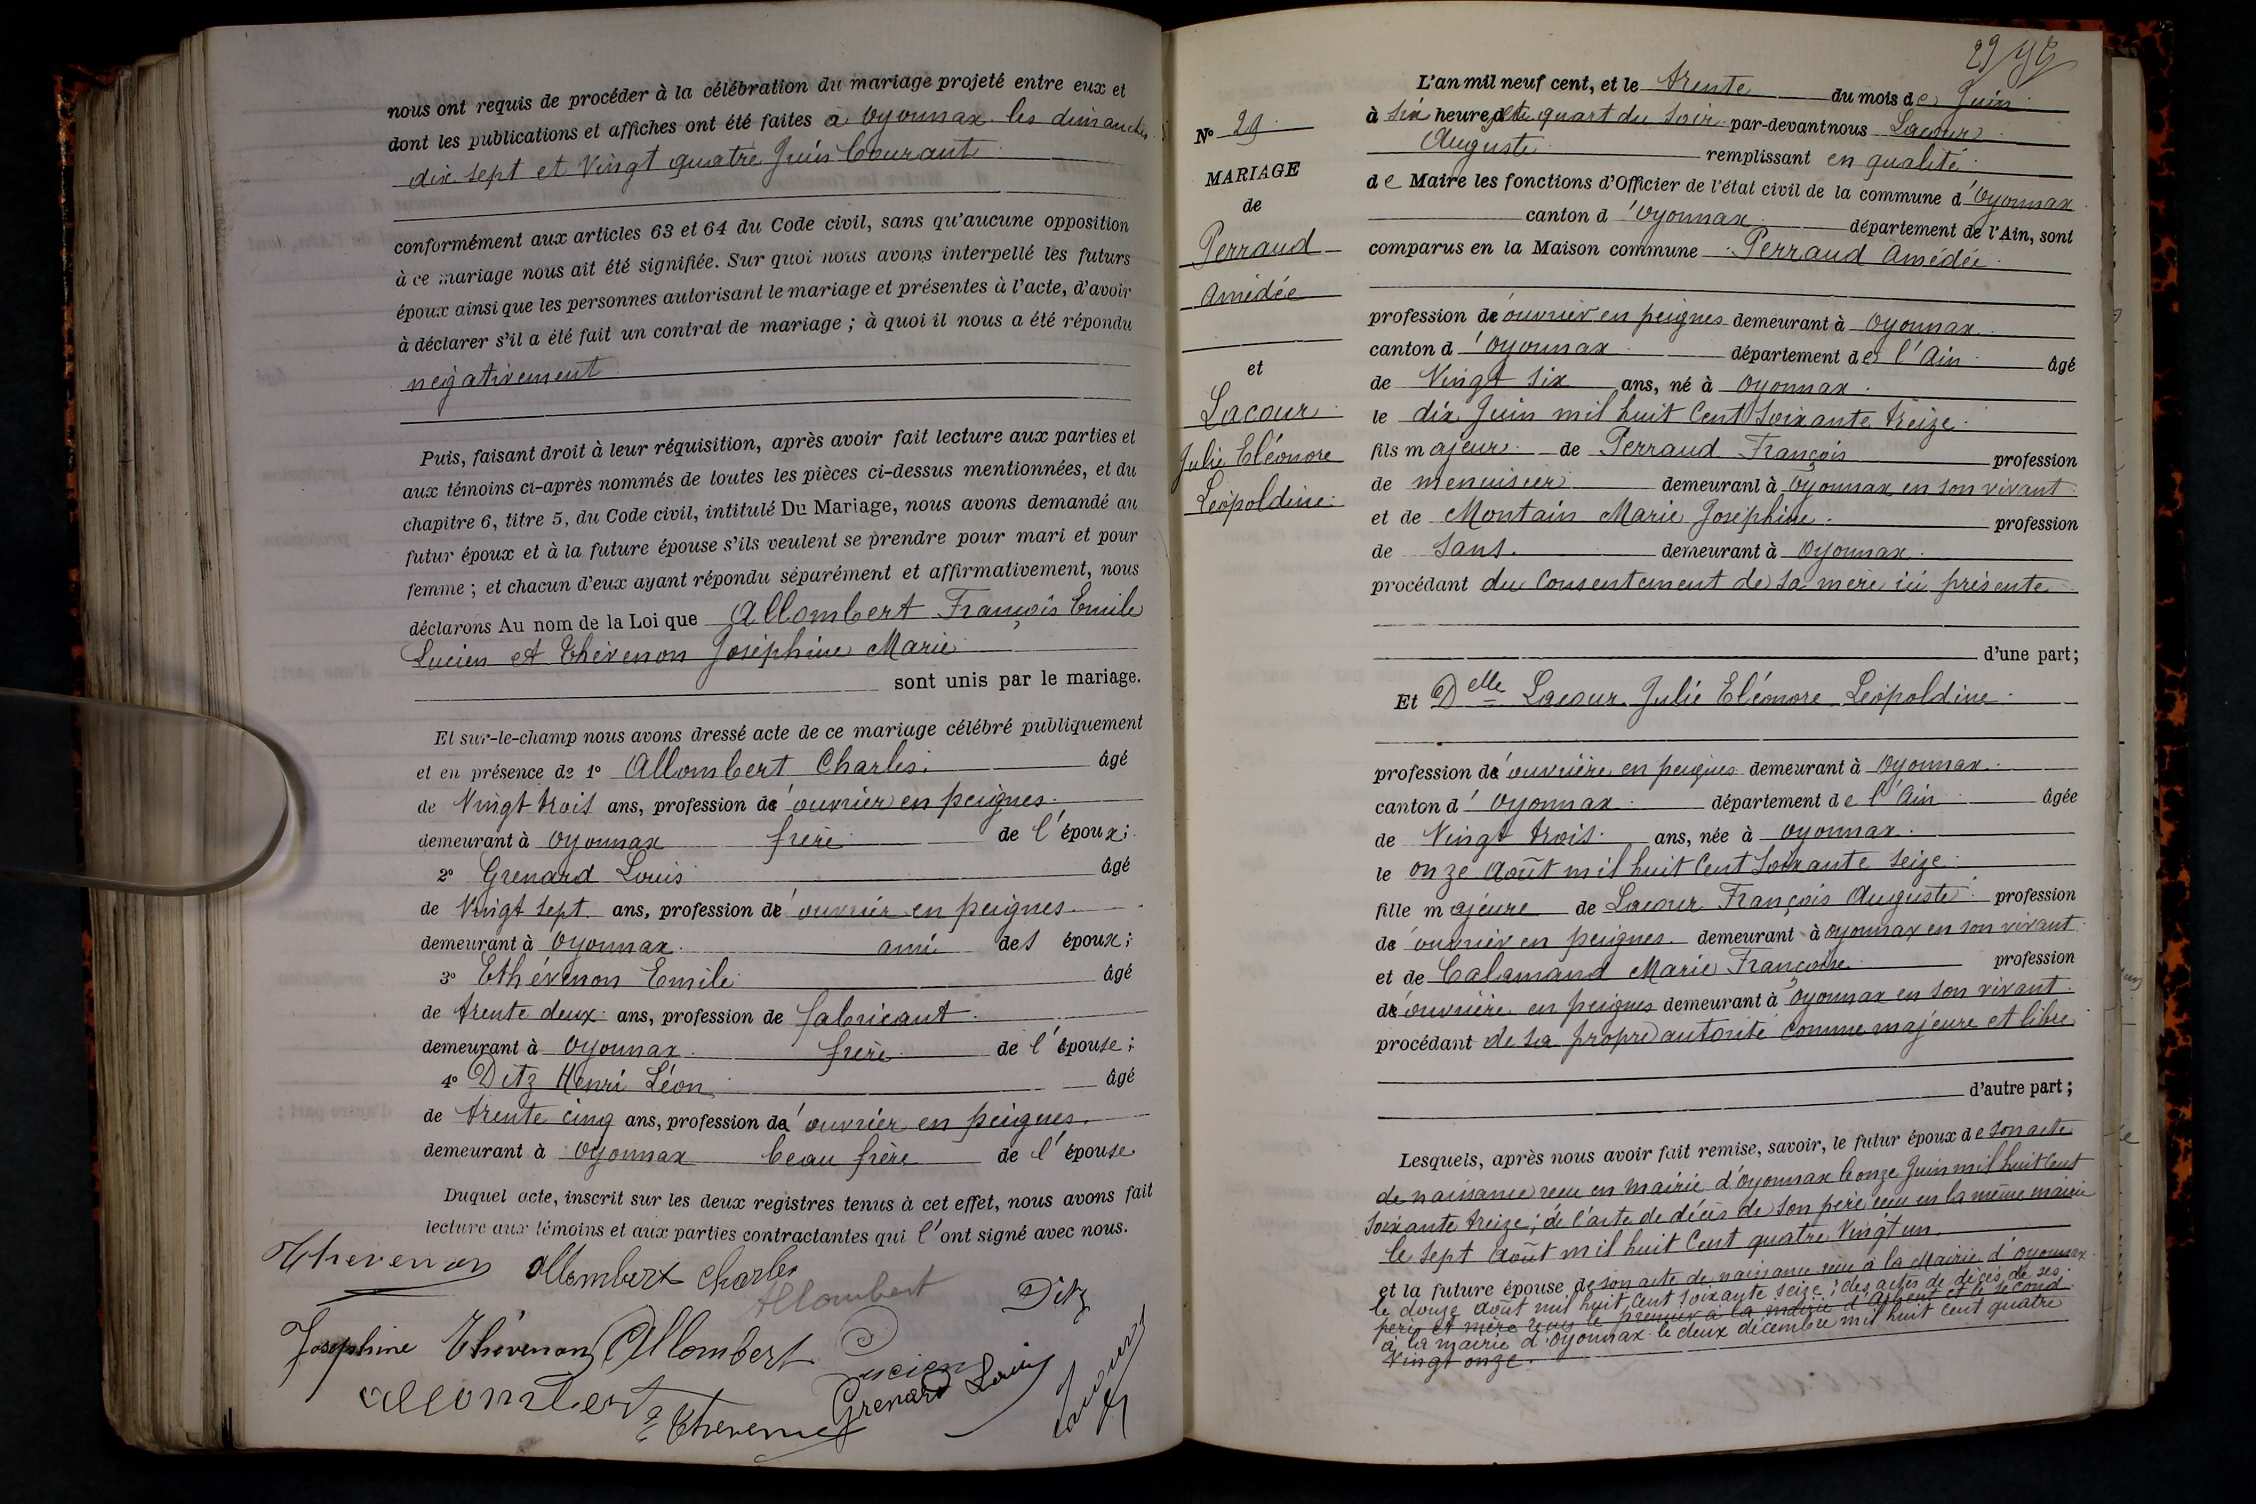 nous ont requis de procéder à la célébration du mariage projeté entre eux et
dont les publications et affiches ont été faites à Oyonnax les dimanches
dix sept et Vingt quatre Juin Courant
conformément aux articles 63 et 64 du Code civil, sans qu'aucune opposition
à ce mariage nous ait été signifiée. Sur quoi nous avons interpellé les futurs
époux ainsi que les personnes autorisant le mariage et présentes à l'acte, d'avoir
à déclarer s'il a été fait un contrat de mariage ; à quoi il nous a été répondu
négativement
Puis, faisant droit à leur réquisition, après avoir fait lecture aux parties et
aux témoins ci-après nommés de toutes les pièces ci-dessus mentionnées, et du
chapitre 6, titre 5, du Code civil, intitulé Du Mariage, nous avons demandé au
futur époux et à la future épouse s'ils veulent se prendre pour mari et pour
femme ; et chacun d'eux ayant répondu séparément et affirmativement, nous
déclarons Au nom de la Loi que Allombert François Emile
Lucien et Thévenon Joséphine Marie
sont unis par le mariage.
Et sur-le-champ nous avons dressé acte de ce mariage célébré publiquement
et en présence de 1° Allombert Charles. âgé
de Vingt trois ans, profession d'ouvrier en peignes.
demeurant à Oyonnax frère de l'époux ;
2° Grenard Louis âgé
de Vingt sept ans, profession d'ouvrier en peignes.
demeurant à Oyonnax. ami des époux ;
3° Ethévenon Emile âgé
de trente deux ans, profession de fabricant.
demeurant à Oyonnax. frère de l'épouse ;
4° Ditz Henri Léon âgé
de trente cinq ans, profession d'ouvrier en peignes.
demeurant à Oyonnax beau frère de l'épouse
Duquel acte, inscrit sur les deux registres tenus à cet effet, nous avons fait
lecture aux témoins et aux parties contractantes qui l'ont signé avec nous.
Thevenon Allombert Charles
Allombert Ditz
Joséphine Thévenon Allombert Lucien
Allombert Thevenon Grenard Louis Lacour
29
N° 29
MARIAGE
de
Perraud
Amédée
et
Lacour
Julie Eléonore
Léopoldine.
L'an mil neuf cent, et le trente du mois de Juin
à six heures et quart du soir par-devant nous Lacour
Auguste remplissant en qualité
de Maire les fonctions d'Officier de l'état civil de la commune d'Oyonnax
canton d'Oyonnax département de l'Ain, sont
comparus en la Maison commune : Perraud Amédée
profession d'ouvrier en peignes demeurant à Oyonnax
canton d'Oyonnax département de l'Ain âgé
de Vingt six ans, né à Oyonnax.
le dix Juin mil huit Cent Soixante treize.
fils majeur de Perraud François profession
de menuisier demeurant à Oyonnax en son vivant
et de Montain Marie Joséphine. profession
de sans. demeurant à Oyonnax.
procédant du Consentement de sa mère ici présente
d'une part ;
Et Delle Lacour Julie Eléonore Léopoldine.
profession d'ouvrière en peignes demeurant à Oyonnax.
canton d'Oyonnax département de l'Ain âgée
de Vingt trois. ans, née à Oyonnax.
le onze Août mil huit Cent Soixante seize.
fille majeure de Lacour François Auguste profession
d'ouvrier en peignes. demeurant à Oyonnax en son vivant
et de Calamand Marie Françoise profession
d'ouvrière en peignes demeurant à Oyonnax en son vivant.
procédant de sa propre autorité comme majeure et libre
d'autre part ;
Lesquels, après nous avoir fait remise, savoir, le futur époux de son acte
de naissance reçu en mairie d'Oyonnax le onze Juin mil huit Cent
Soixante treize ; de l'acte de décès de son père reçu en la même mairie
le sept Août mil huit Cent quatre Vingt un.
et la future épouse de son acte de naissance reçu à la Mairie d'Oyonnax
le douze Août mil huit Cent soixante seize ; des actes de décès de ses
père et mère reçus le premier à la mairie d'Arbent et le second
à la mairie d'Oyonnax le deux décembre mil huit Cent quatre
Vingt onze.